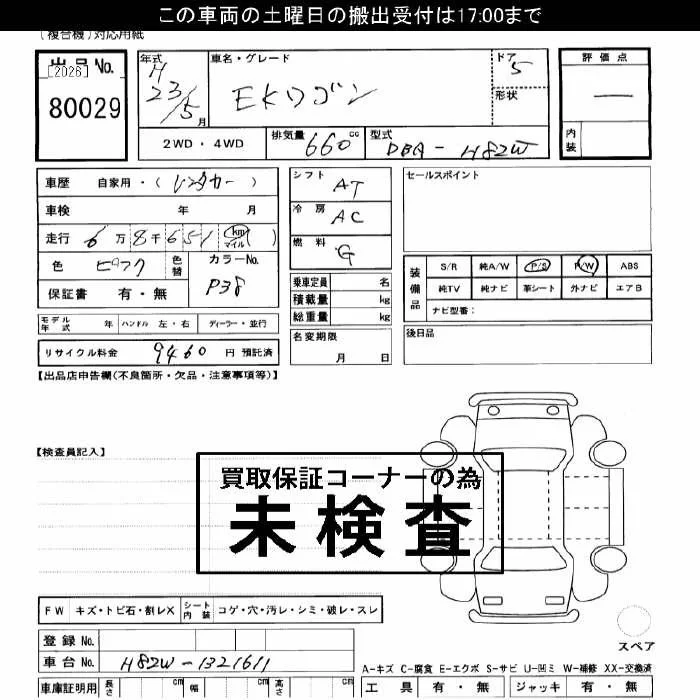 この車両の土曜日の搬出受付は17:00まで
(複合機)対応用紙
出品No.
[2026]
80029
年式
H
23/5月
車名・グレード
EKワゴン
ドア
5
形状
評価点
—
内装
2WD・4WD
排気量
660cc
型式
DBA-H82W
車歴 自家用・(レンタカー)
車検 年 月
走行 6万8千651 km マイル ( )
色 ピンク
色替
カラーNo.
P38
保証書 有・無
モデル年式 年 ハンドル 左・右 ディーラー・並行
リサイクル料金 9460 円 預託済
シフト AT
冷房 AC
燃料 G
乗車定員 名
積載量 kg
総重量 kg
名変期限
月 日
セールスポイント
装備品
S/R 純A/W P/S P/W ABS
純TV 純ナビ 革シート 外ナビ エアB
ナビ型番:
後日品
【出品店申告欄(不良箇所・欠品・注意事項等)】
【検査員記入】
買取保証コーナーの為
未検査
FW キズ・トビ石・割レX シート内装 コゲ・穴・汚レ・シミ・破レ・スレ
登録No.
車台No. H82W-1321611
車庫証明用 長さ cm 幅 cm 高さ cm
スペア
A-キズ C-腐食 E-エクボ S-サビ U-凹ミ W-補修 XX-交換済
工具 有・無 ジャッキ 有・無